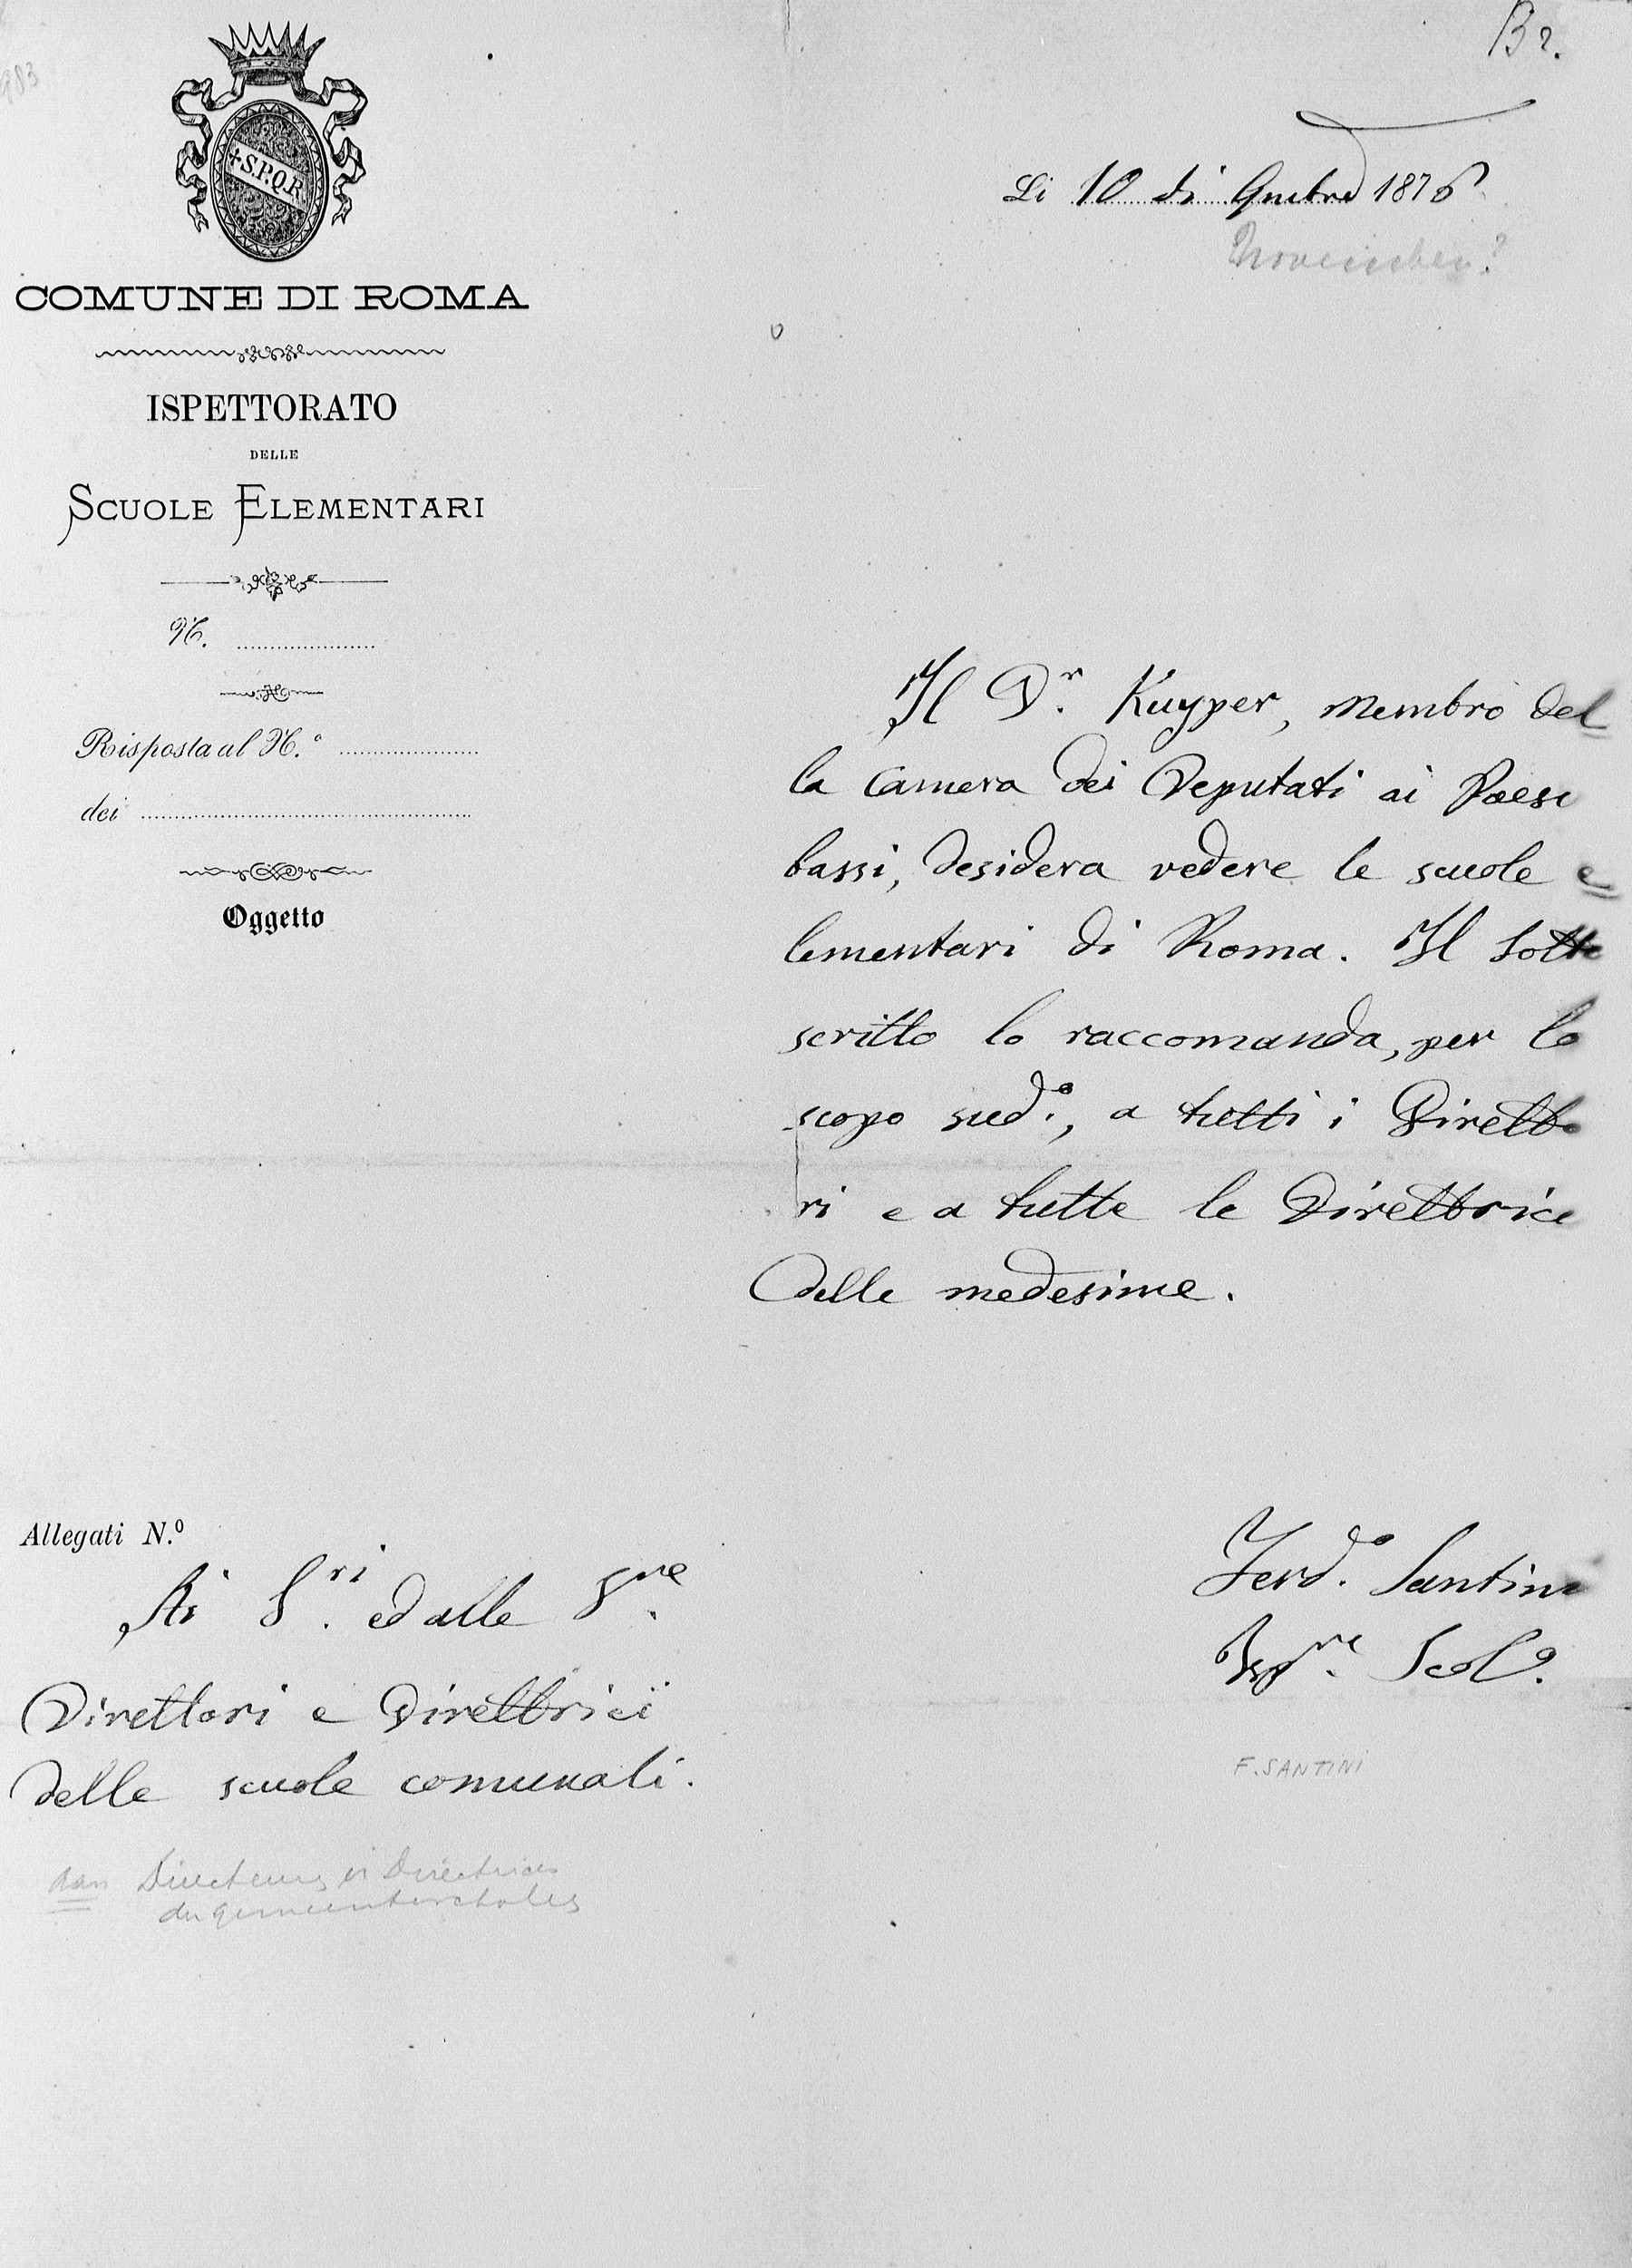 Br.
983
✝S.P.Q.R
COMUNE DI ROMA
ISPETTORATO
DELLE
SCUOLE ELEMENTARI
N.
Risposta al N.º
dei
Oggetto
Li 10 di 9mbre 1876
November?
Il Dr. Kuyper, membro del
la Camera dei Deputati ai Paesi
bassi, desidera vedere le scuole e
lementari di Roma. Il sotto
scritto lo raccomanda, per lo
scopo sudo., a tutti i Diretto
ri e a tutte le Direttrici
delle medesime.
Allegati N.º
Ai Sri. ed alle Sre.
Direttori e Direttrici
delle scuole comunali.
aan Directeurs en Directrices
der gemeentescholen
Ferdo. Santini
Ispre. Scolo.
F. SANTINI